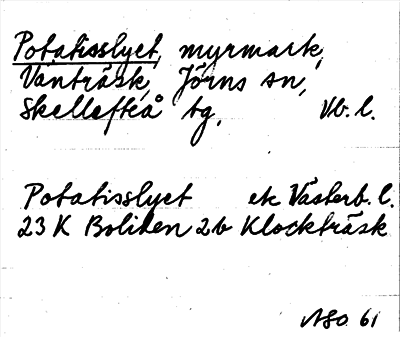 Potatisslyet, myrmark,
Vanträsk, Jörns sn,
Skellefteå tg, Vb. l.
Potatisslyet ek Västerb. l.
23 K Boliden 2b Klockträsk
NSO 61